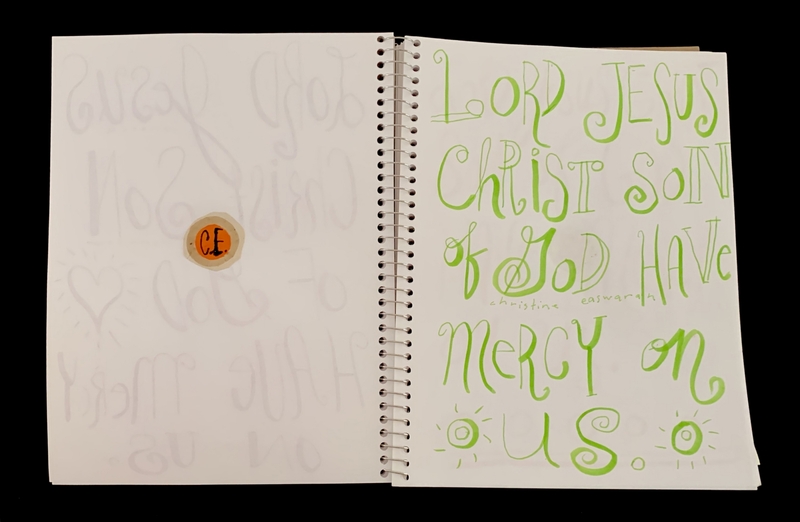 C.E.
LORD JESUS
ChRiST SON
of GOD HAVe
christine easwaran
MeRCY on
US.